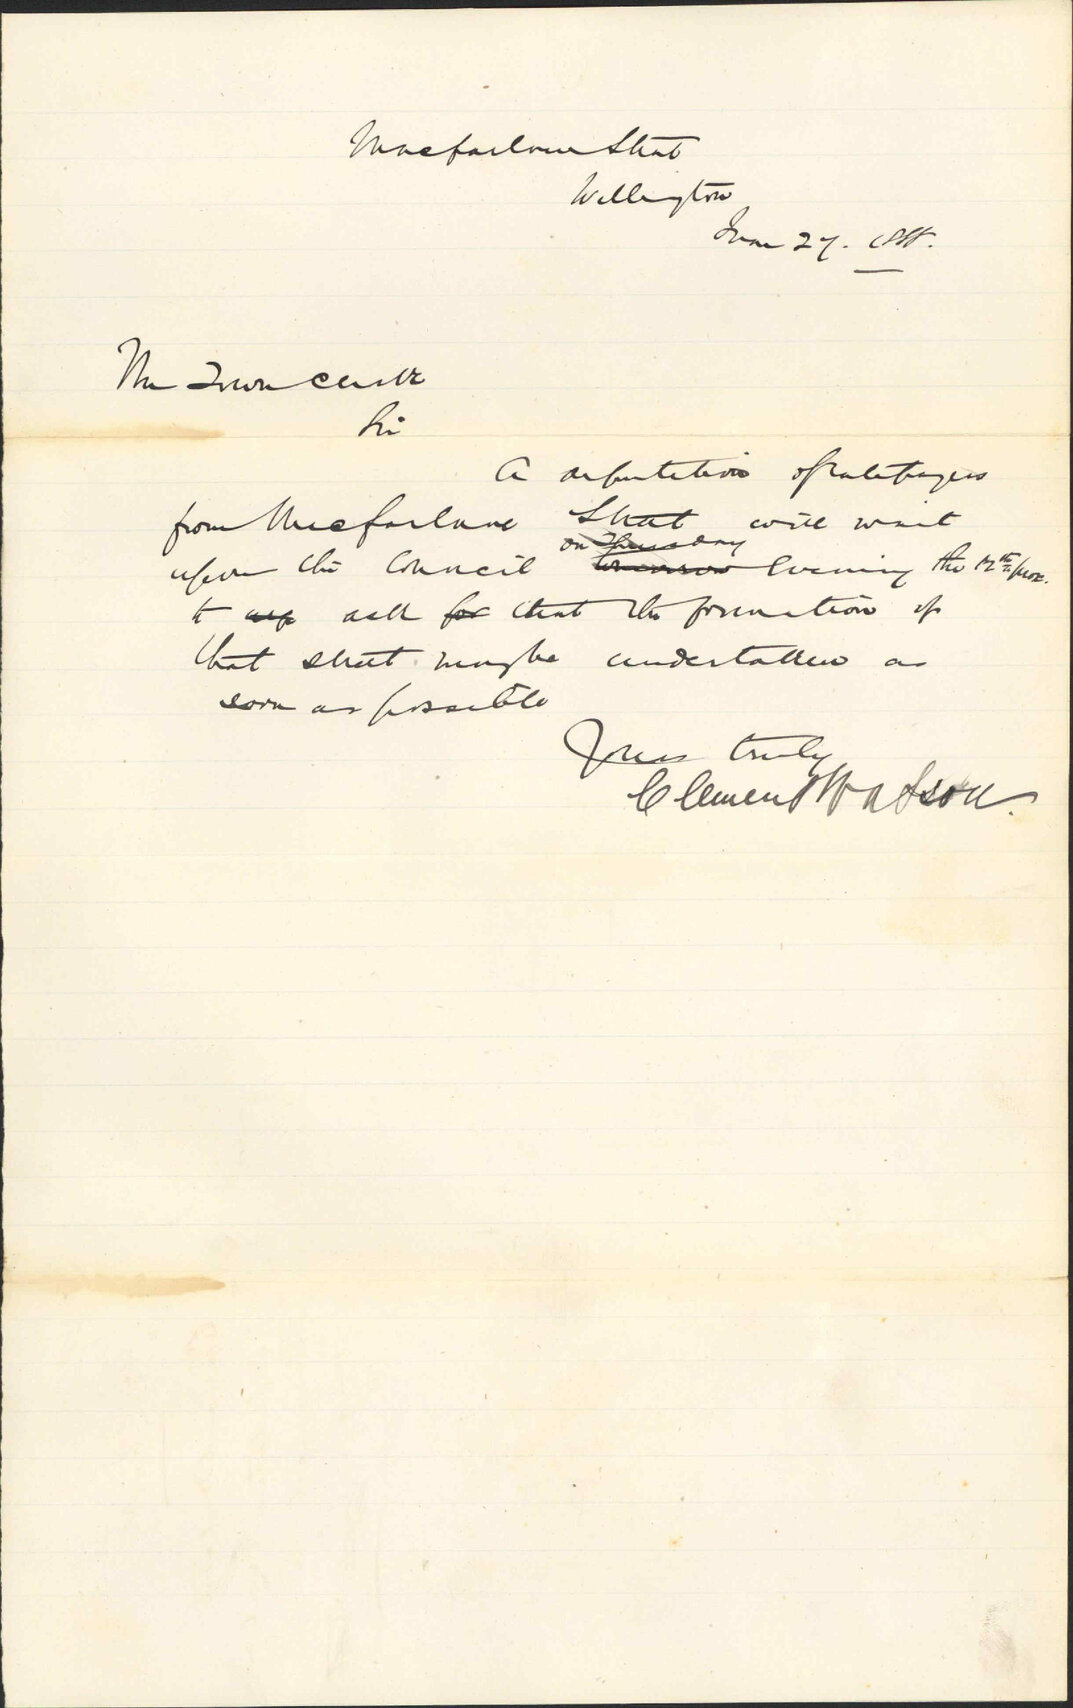 Macfarlane Street
Wellington
June 27. 1888.
The Town Clerk
Sir
A deputation of ratepayers
from Macfarlane Street will wait
on Thursday
upon the Council tomorrow Evening the 12th prox.
to ask for that the formation of
that street may be undertaken as
soon as possible
Yours truly
Clement Watson.